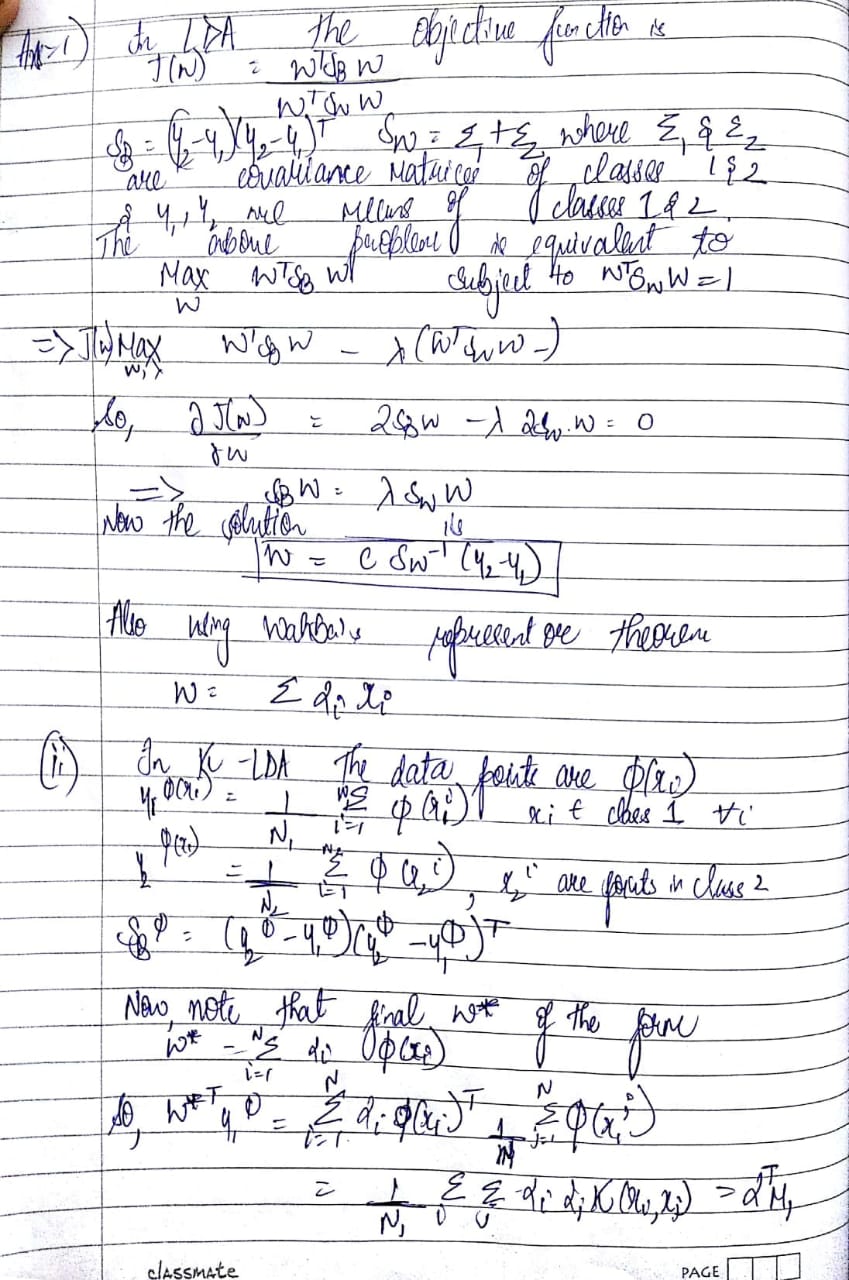 Ans-1) In LDA the objective function is
J(W) = WᵀS_B W
WᵀS_W W
S_B = (μ₂-μ₁)(μ₂-μ₁)ᵀ S_W = Σ₁+Σ₂ where Σ₁ & Σ₂
are covariance matrices of classes 1 & 2
& μ₁, μ₂ are means of classes 1 & 2.
The above problem is equivalent to
Max WᵀS_B W subject to WᵀS_W W = 1
W
=> J(w) Max WᵀS_B W - λ(WᵀS_W W -)
W, λ
So, ∂J(W) = 2S_B W - λ 2S_W . W = 0
∂W
=> S_B W = λ S_W W
Now the solution is
W = C S_W⁻¹ (μ₂-μ₁)
Also using theorem
W = Σ αᵢ xᵢ
(ii) In K-LDA The data points are φ(xᵢ)
μ₁^φ(xᵢ) = 1 Σ φ(x₁ⁱ) xi ∈ class 1 ∀i
N₁ i=1
μ₂^φ(xᵢ) = 1 Σ φ(x₂ⁱ), x₂ⁱ are points in class 2
N₂ i=1
S_B^φ = (μ₂^φ - μ₁^φ)(μ₂^φ - μ₁^φ)ᵀ
Now, note that final w* of the form
w* = Σ αᵢ φ(xᵢ)
i=1
So, w*ᵀ μ₁^φ = Σ αᵢ φ(xᵢ)ᵀ 1 Σ φ(x₁ʲ)
= 1 Σ Σ αᵢ αⱼ K(xᵢ, xⱼ) = αᵀM₁
N₁ i j
classmate PAGE